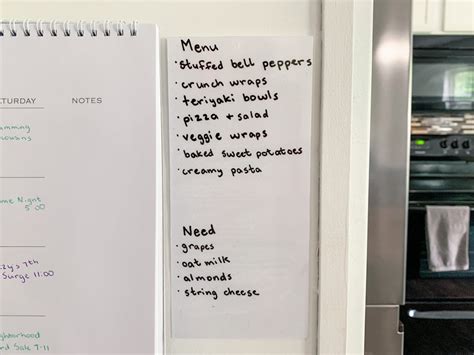 ATURDAY
NOTES
me Night
5:00
7th
Surge 11:00
ghbourhood
rd Sale 9-11
Menu
· stuffed bell peppers
· crunch wraps
· teriyaki bowls
· pizza + salad
· veggie wraps
· baked sweet potatoes
· creamy pasta
Need
· grapes
· oat milk
· almonds
· string cheese